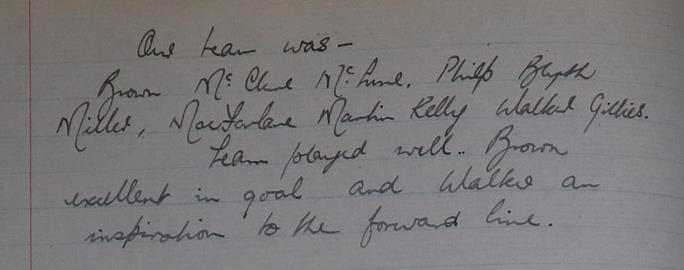 Our team was -
Brown McClure McLune, Philp Blyth
Miller, MacFarlane Martin Kelly Walker Gillies.
Team played well.. Brown
excellent in goal and Walker an
inspiration to the forward line.